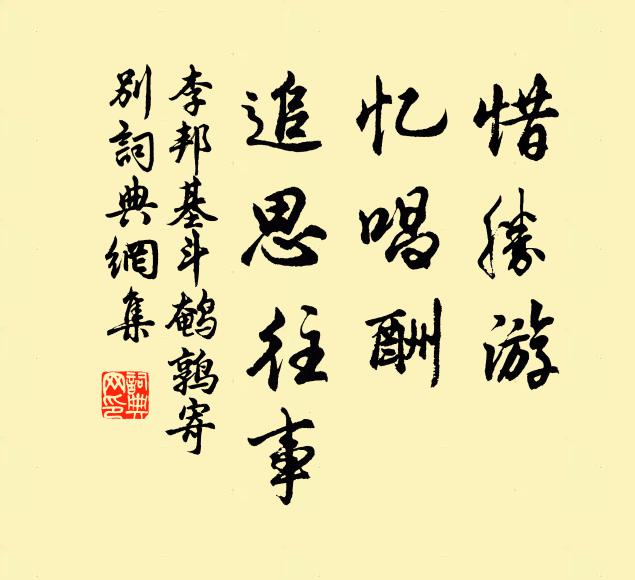 惜勝游
忆唱酬
追思往事
李邦基斗鹌鹑寄
别詞典網集
詞典网印